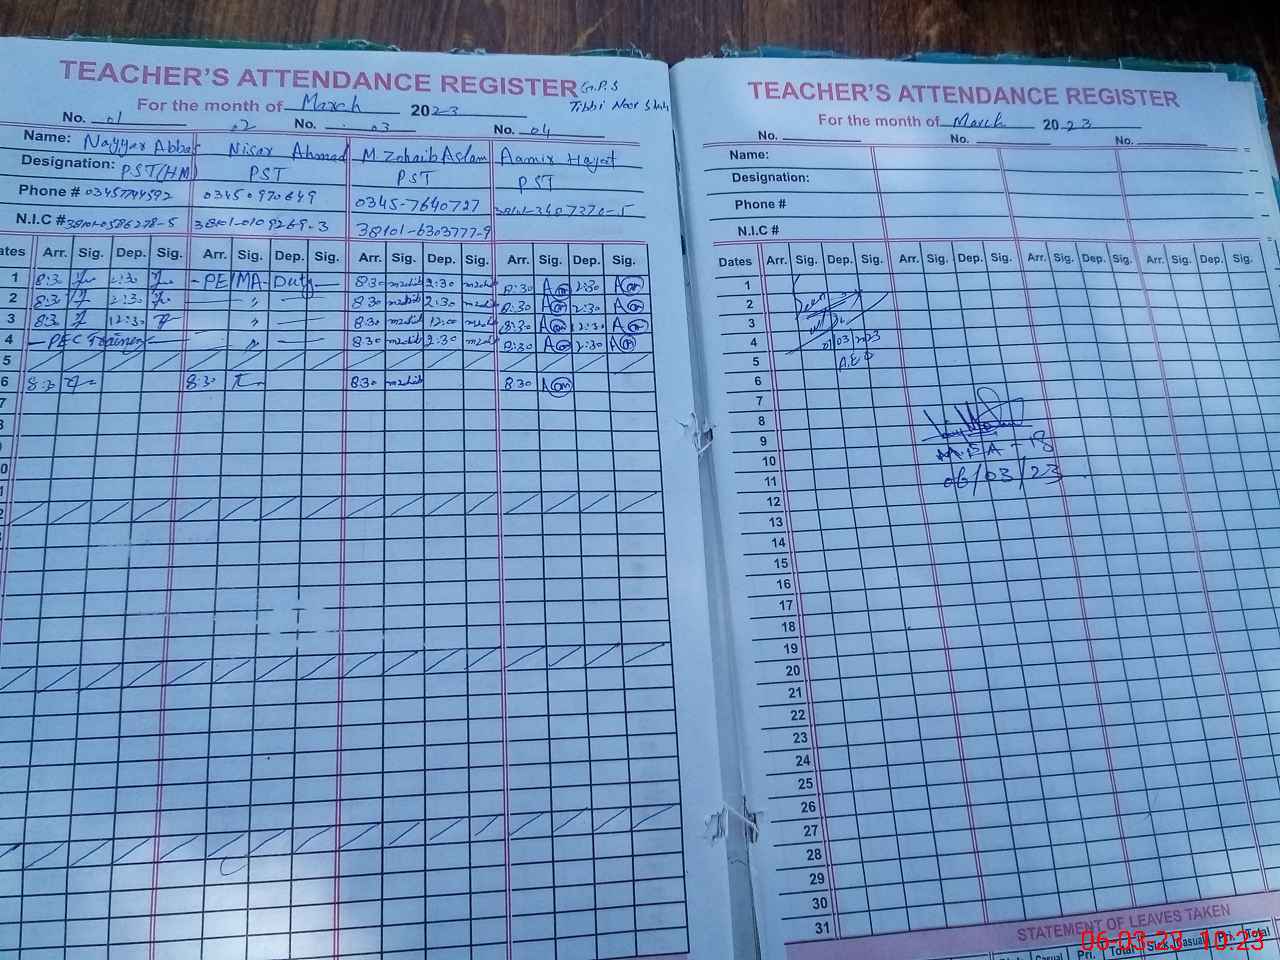 TEACHER'S ATTENDANCE REGISTER G.P.S
Tibbi Noor Shah
For the month of March 2023
No. 01 02 No. 03 No. 04
Name: Nayyar Abbas Nisar Ahmad M Zohaib Aslam Aamir Hayat
Designation: PST(HM) PST PST PST
Phone # 03457744592 03450970649 0345-7640727
N.I.C # 38101-0109269-3 38101-6303777-9
Dates Arr. Sig. Dep. Sig. Arr. Sig. Dep. Sig. Arr. Sig. Dep. Sig. Arr. Sig. Dep. Sig.
1 8:30 2:30 - PE/MA- Duty - 8:30 2:30 8:30 2:30
2 8:30 2:30 - " - 8:30 2:30 8:30 2:30
3 8:30 12:30 " - 8:30 12:00 8:30 12:30
4 - PEC Training - " - 8:30 2:30 8:30 2:30
5
6 8:30 8:30 8:30 8:30
7
TEACHER'S ATTENDANCE REGISTER
For the month of March 2023
No. No. No.
Name:
Designation:
Phone #
N.I.C #
Dates Arr. Sig. Dep. Sig. Arr. Sig. Dep. Sig. Arr. Sig. Dep. Sig.
1
2 Seen
3
4 01/03/2023
5 A.E.O
6
7
8
9
10 M.E.A - 18
11 06/03/23
12
13
14
15
16
17
18
19
20
21
22
23
24
25
26
27
28
29
30
31
STATEMENT OF LEAVES TAKEN
Casual Pri. Total Sick Casual Pri. Total
06-03-23 10:23